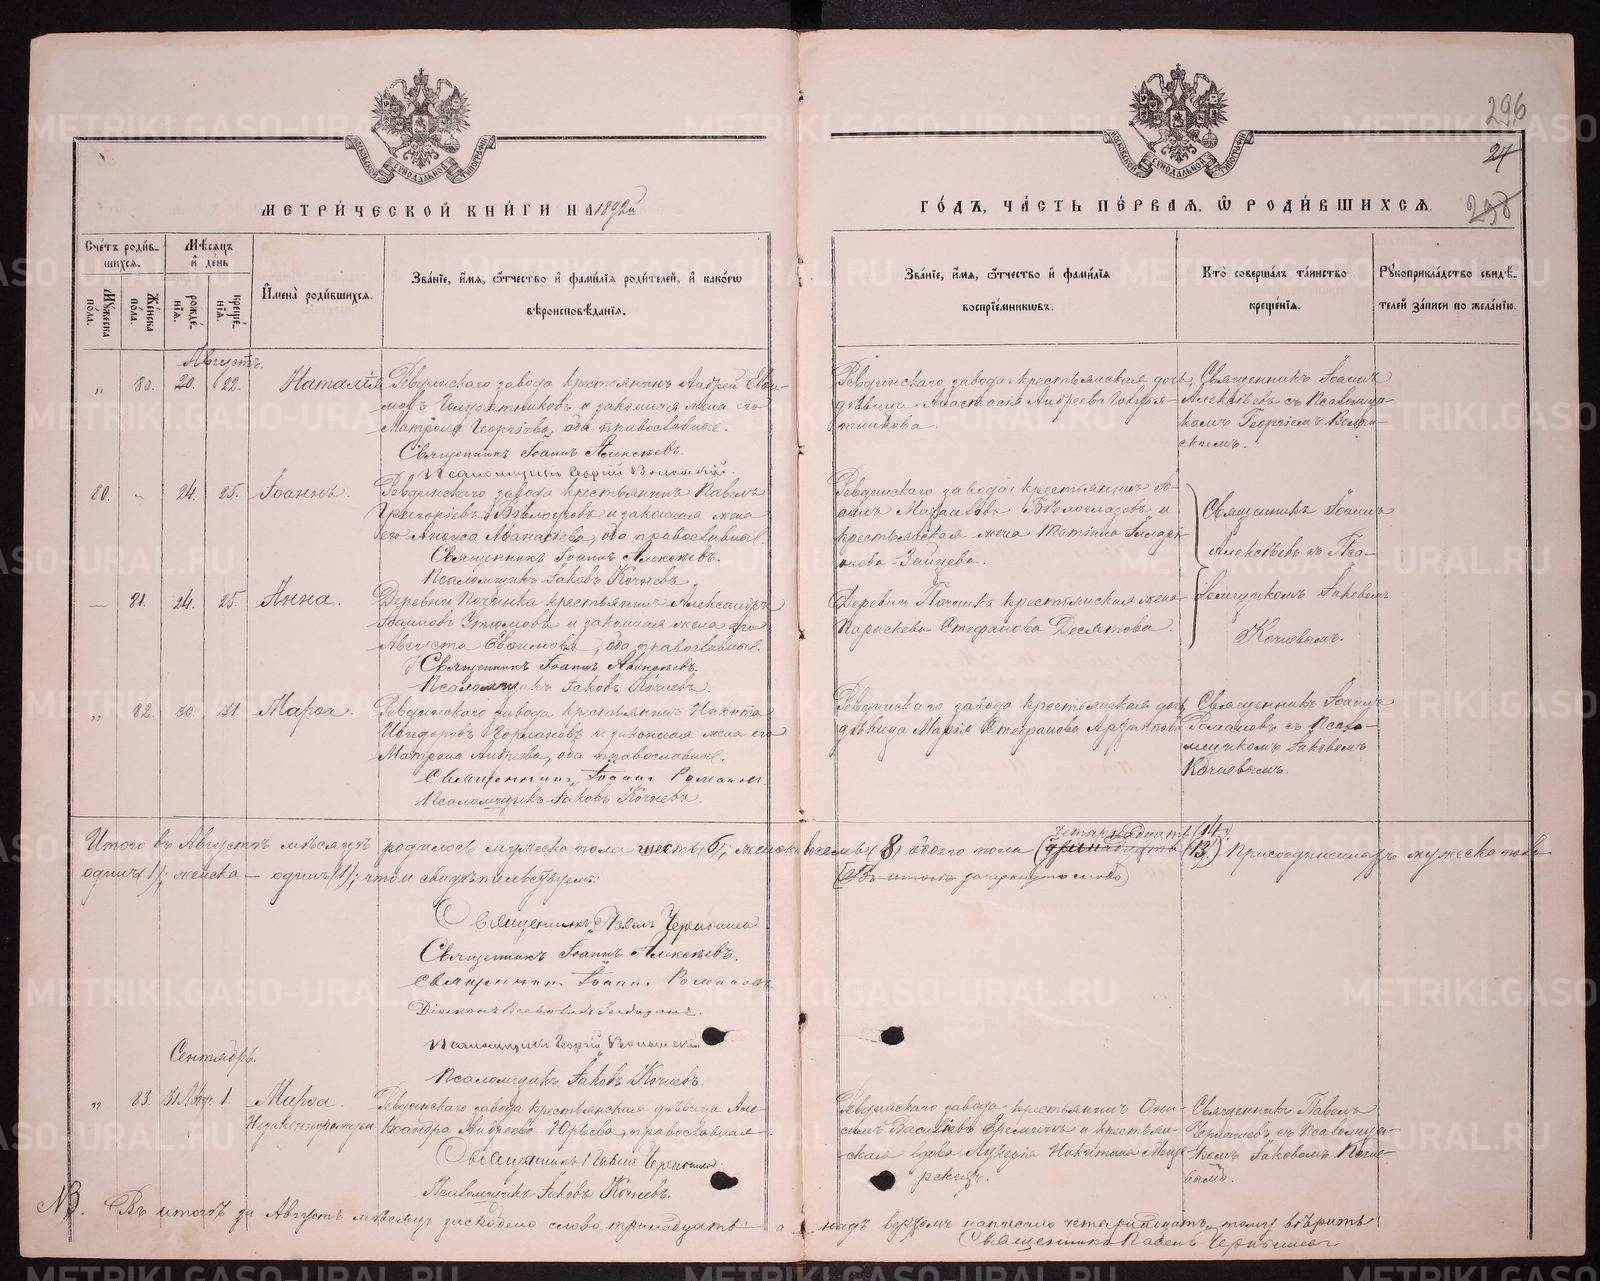 296
24
298
МОСКОВСКОЙ СѴНОДАЛЬНОЙ ТИПОГРАФІИ
МОСКОВСКОЙ СѴНОДАЛЬНОЙ ТИПОГРАФІИ
МЕТРИ́ЧЕСКОЙ КНИ́ГИ НА 1892й
ГО́ДЪ, ЧА́СТЬ ПЕ́РВАЯ, Ѿ РОДИ́ВШИХСЯ.
Сче́тъ роди́в-
шихся.
Му́жеска по́ла.
Же́нска по́ла.
Мѣ́сяцъ
и҆ де́нь
рожде́-
нїя.
креще́-
нїя.
И҆мена̀ роди́вшихся.
Зва́нїе, и҆́мя, ѻ҆́тчество и҆ фами́лїя роди́телей, и҆ како́гѡ
вѣроисповѣ́данїя.
Зва́нїе, и҆́мя, ѻ҆́тчество и҆ фами́лїя
воспрїе́мниковъ.
Кто̀ соверша́лъ та́инство
креще́нїя.
Рукоприкла́дство свидѣ́-
телей за́писи по жела́нїю.
Августъ.
„ 80. 20. 22. Наталія
Ревдинскаго завода крестьянинъ Андрей Евѳи-
мовъ Голубятниковъ и законная жена его
Матрона Георгіева, оба православные.
Священникъ Іоаннъ Алексѣевъ.
Псаломщикъ Георгій
Ревдинскаго завода крестьянская дочь
дѣвица Анастасія Андреева Голубя-
тникова.
Священникъ Іоаннъ
Алексѣевъ съ Псаломщи-
комъ Георгіемъ
80. „ 24. 25. Іоаннъ.
Ревдинскаго завода крестьянинъ Павелъ
Григорьевъ Бѣлоглазовъ и законная жена
его Анѳиса Аѳанасьева, оба православные.
Священникъ Іоаннъ Алексѣевъ.
Псаломщикъ Іаковъ Кочневъ.
Ревдинскаго завода крестьянинъ Іо-
аннъ Михаиловъ Бѣлоглазовъ и
крестьянская жена Татіана
Зайцева.
Священникъ Іоаннъ
Алексѣевъ съ Пса-
ломщикомъ Іаковомъ
Кочневымъ.
— 81. 24. 25. Анна.
Деревни Починка крестьянинъ Александръ
Іоанновъ Утюмовъ и законная жена его
Августа Евѳимова, оба православные.
Священникъ Іоаннъ Алексѣевъ.
Псаломщикъ Іаковъ Кочневъ.
Деревни Починка крестьянская жена
Параскева Стефанова Десятова.
„ 82. 30. 31 Марѳа.
Ревдинскаго завода крестьянинъ Никита
Исидоровъ Горлановъ и законная жена его
Матрона Андреева, оба православные.
Священникъ Іоаннъ Романовъ
Псаломщикъ Іаковъ Кочневъ.
Ревдинскаго завода крестьянская дочь
дѣвица Марія Стефанова
Священникъ Іоаннъ
Романовъ съ Псало-
мщикомъ Іаковомъ
Кочневымъ.
Итого въ Августѣ мѣсяцѣ родилось мужеска пола шесть (6), женска восемь (8) обоего пола четырнадцать (14). (тринадцать (13)) Присоединенныхъ мужеска пола
одинъ (1); женска — одинъ (1); въ томъ свидѣтельствуемъ:
(Въ итогѣ зачеркнуто слово)
Священникъ Павелъ Чернышевъ
Священникъ Іоаннъ Алексѣевъ.
Священникъ Іоаннъ Романовъ
Діаконъ Всеволодъ
Псаломщикъ Георгій
Псаломщикъ Іаковъ Кочневъ.
Сентябрь.
„ 83. 31 Авг. 1. Марѳа.
Незаконнорожден
Ревдинскаго завода крестьянская дѣвица Але-
ксандра Андреева Юрьева, православная
Священникъ Павелъ Чернышевъ
Псаломщикъ Іаковъ Кочневъ.
Ревдинскаго завода крестьянинъ Они-
симъ Васильевъ Ереминъ и крестьян-
ская вдова Лукерія Никитина Меще-
рскихъ.
Священникъ Павелъ
Чернышевъ съ Псаломщи-
комъ Іаковомъ Кочне-
вымъ.
NB. Въ итогѣ за Августъ мѣсяцъ заскоблено слово тринадцать — а надъ верхомъ написано четырнадцать, тому вѣрить
Священникъ Павелъ Чернышевъ
METRIKI.GASO-URAL.RU